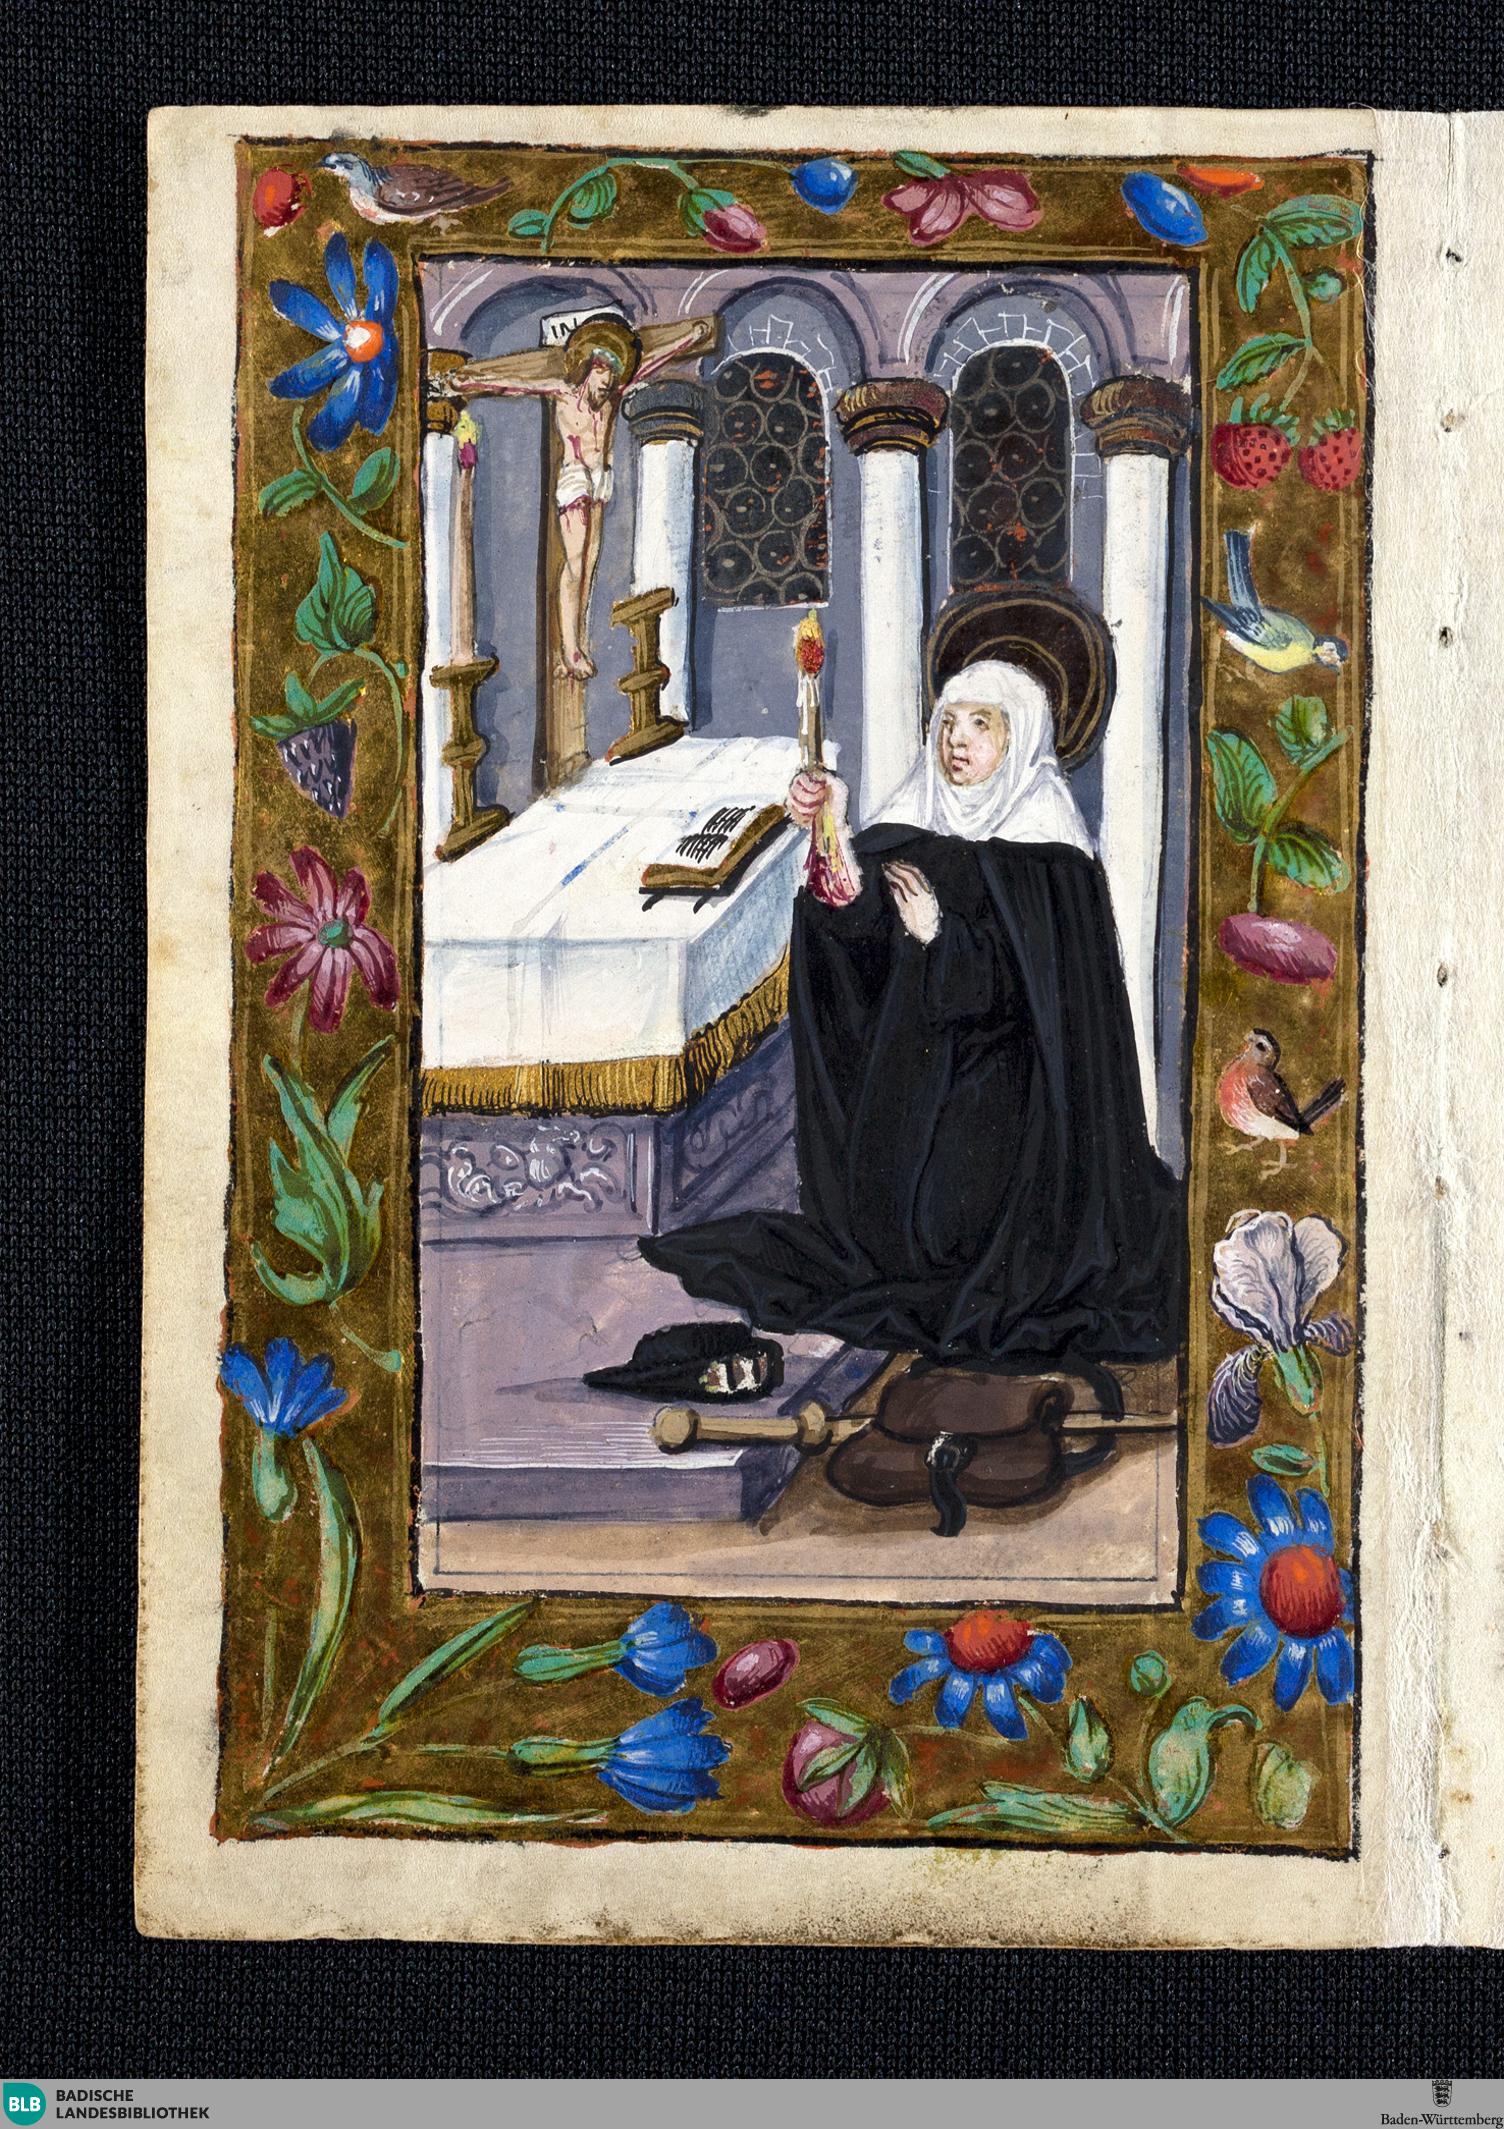 IN
BLB
BADISCHE
LANDESBIBLIOTHEK
Baden-Württemberg